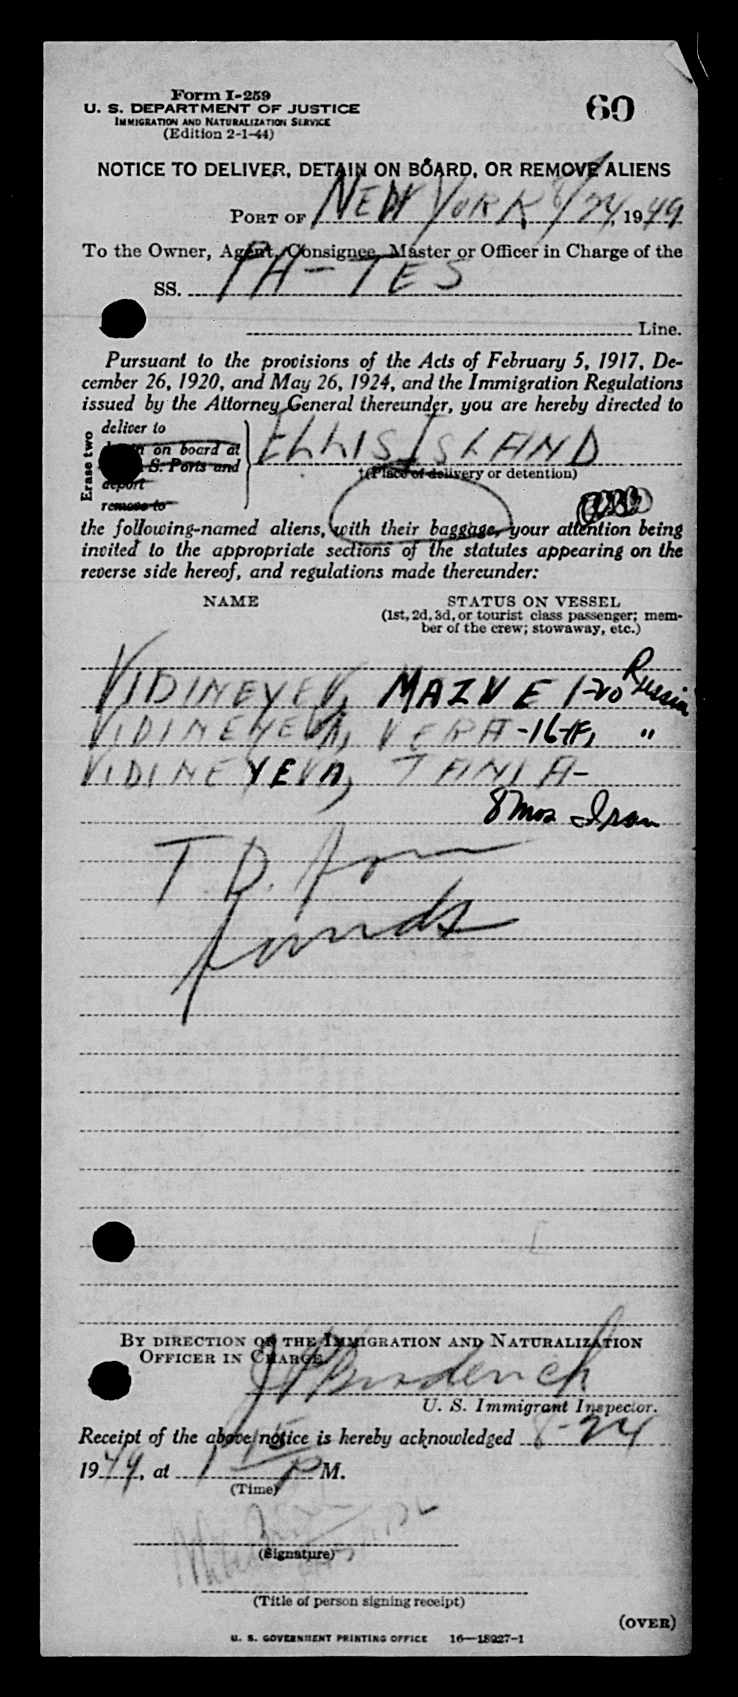 Form I-259
60
U. S. DEPARTMENT OF JUSTICE
IMMIGRATION AND NATURALIZATION SERVICE
(Edition 2-1-44)
NOTICE TO DELIVER, DETAIN ON BOARD, OR REMOVE ALIENS
PORT OF NEW YORK 8/24, 1949
To the Owner, Agent, Consignee, Master or Officer in Charge of the
SS. PA-TES
Line.
Pursuant to the provisions of the Acts of February 5, 1917, De-
cember 26, 1920, and May 26, 1924, and the Immigration Regulations
issued by the Attorney General thereunder, you are hereby directed to
Erase two
deliver to
on board at ELLIS ISLAND
S. Ports and
†(Place of delivery or detention)
deport
remove to
the following-named aliens, with their baggage, your attention being
invited to the appropriate sections of the statutes appearing on the
reverse side hereof, and regulations made thereunder:
NAME STATUS ON VESSEL
(1st, 2d, 3d, or tourist class passenger; mem-
ber of the crew; stowaway, etc.)
VIDINEYEV, Russia
VIDINEYEVA, VERA -16-F, "
VIDINEYEVA, TANIA-
8 mos Iran
T D.
funds
BY DIRECTION OF THE IMMIGRATION AND NATURALIZATION
OFFICER IN CHARGE
J P Broderick
U. S. Immigrant Inspector.
Receipt of the above notice is hereby acknowledged 8-24
1949, at 1 15 P M.
(Time)
(Signature)
(Title of person signing receipt)
(OVER)
U. S. GOVERNMENT PRINTING OFFICE 16—18927-1